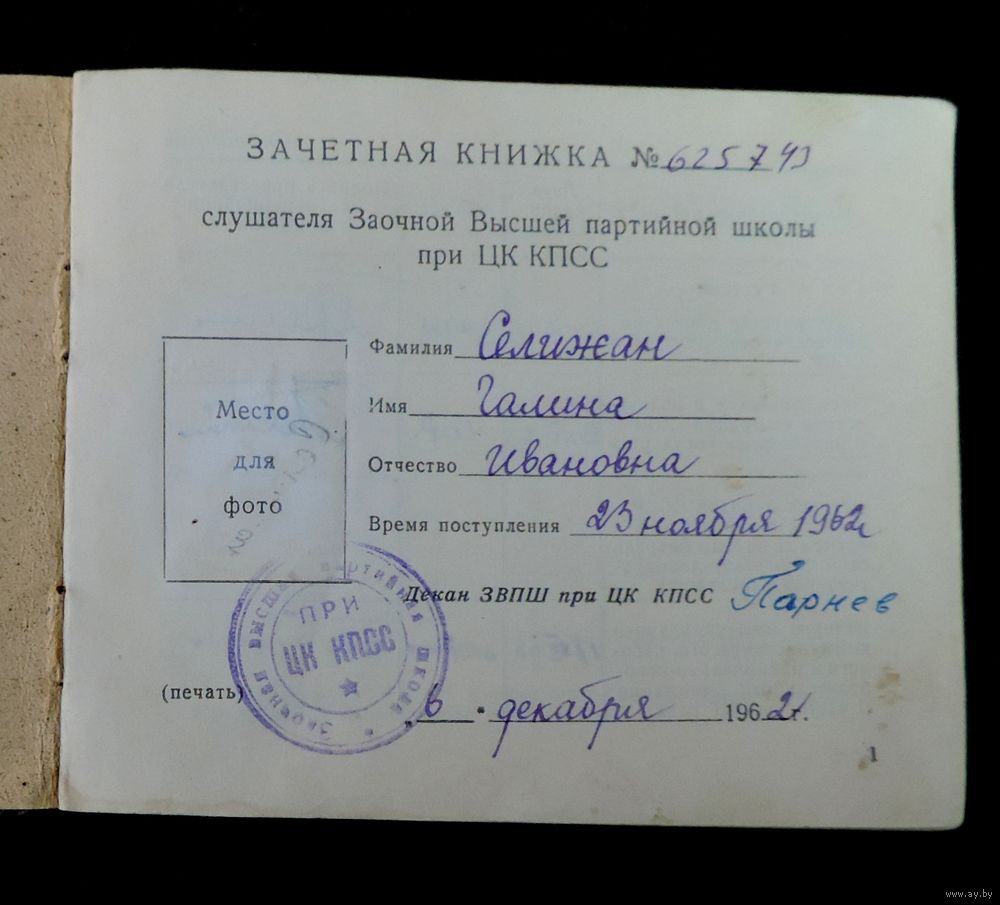 ЗАЧЕТНАЯ КНИЖКА № 625743
слушателя Заочной Высшей партийной школы
при ЦК КПСС
Место
для
фото
Фамилия Селижан
Имя Галина
Отчество Ивановна
Время поступления 23 ноября 1962г
Декан ЗВПШ при ЦК КПСС Парнев
Заочная высшая партийная школа
ПРИ
ЦК КПСС
(печать)
6 декабря 1962г.
1
www.ay.by